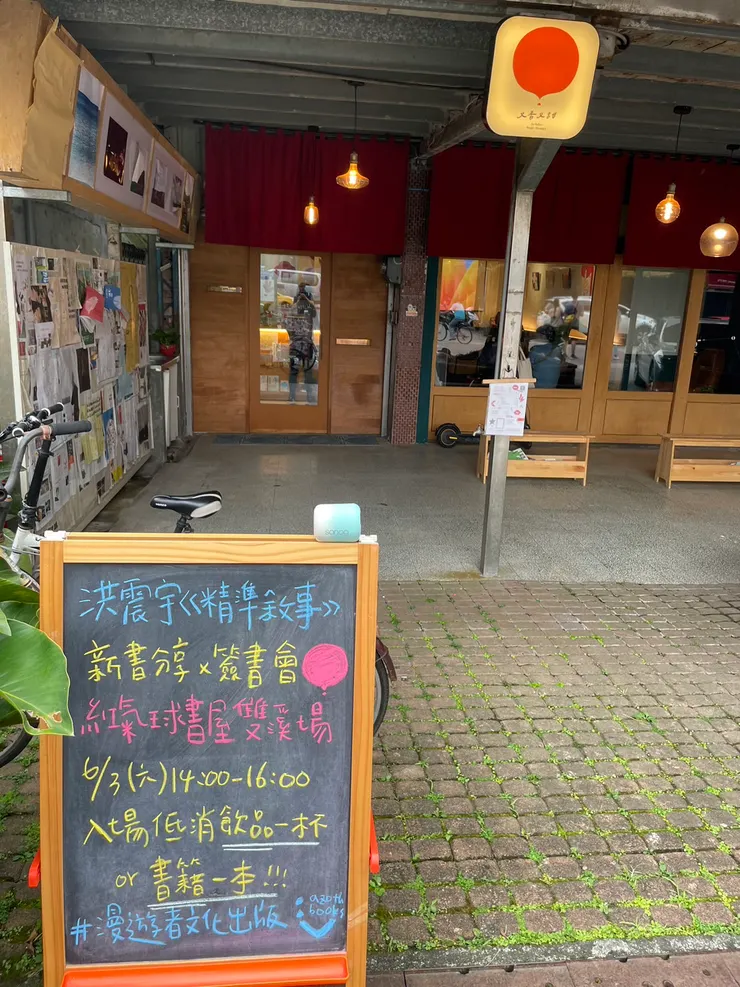 洪震宇《精準敘事》
新書分享x簽書會
紅氣球書屋雙溪場
6/3(六)14:00-16:00
入場低消飲品一杯
or 書籍一本!!!
#漫遊者文化出版
azoth
books